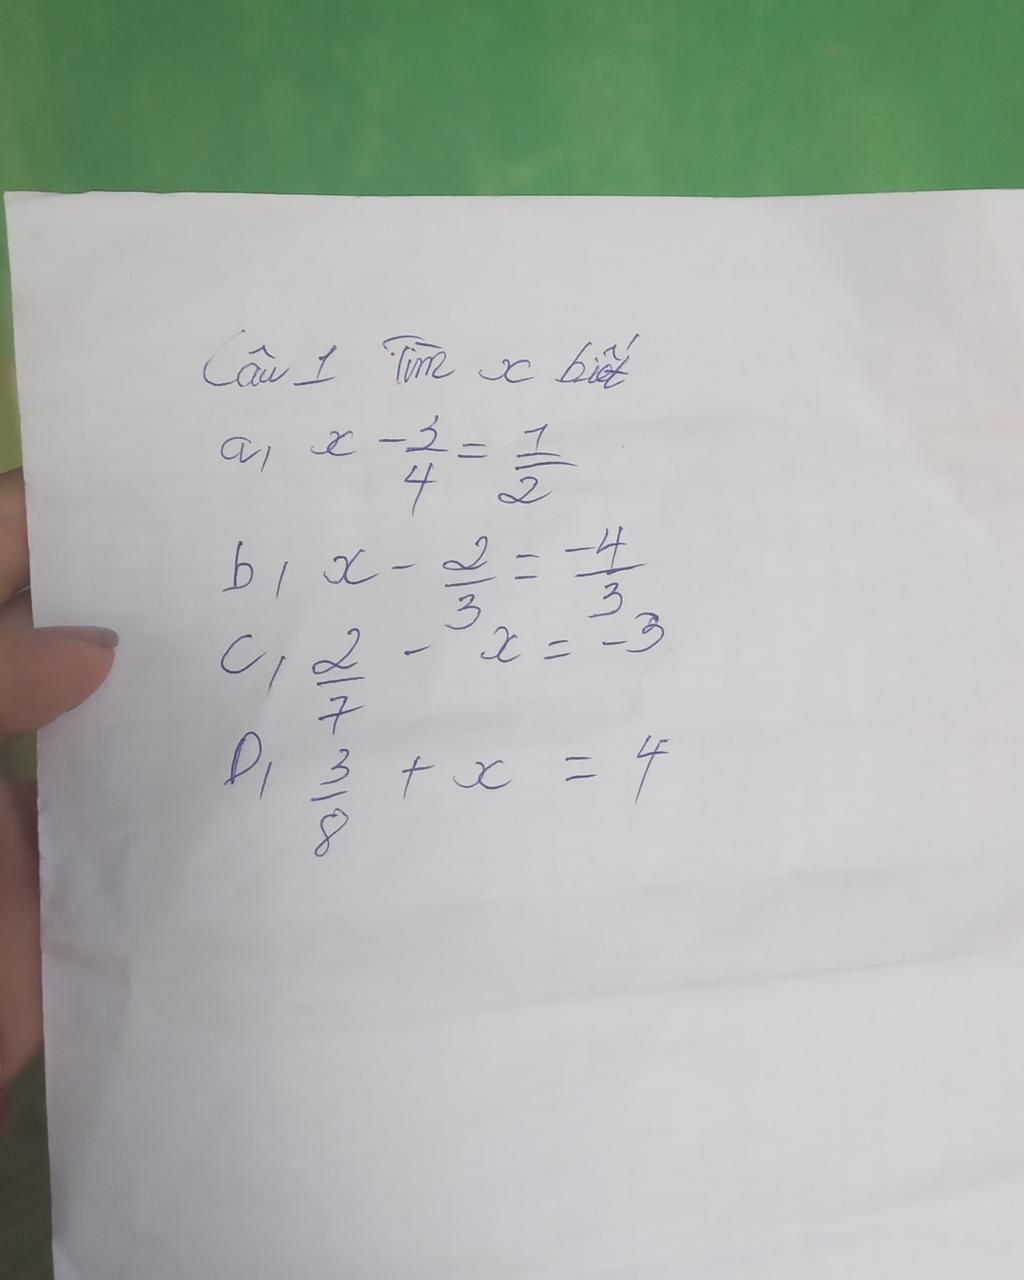 Câu 1 Tìm x biết
a, x - 3/4 = 1/2
b, x - 2/3 = -4/3
C, 2/7 - x = -3
D, 3/8 + x = 4